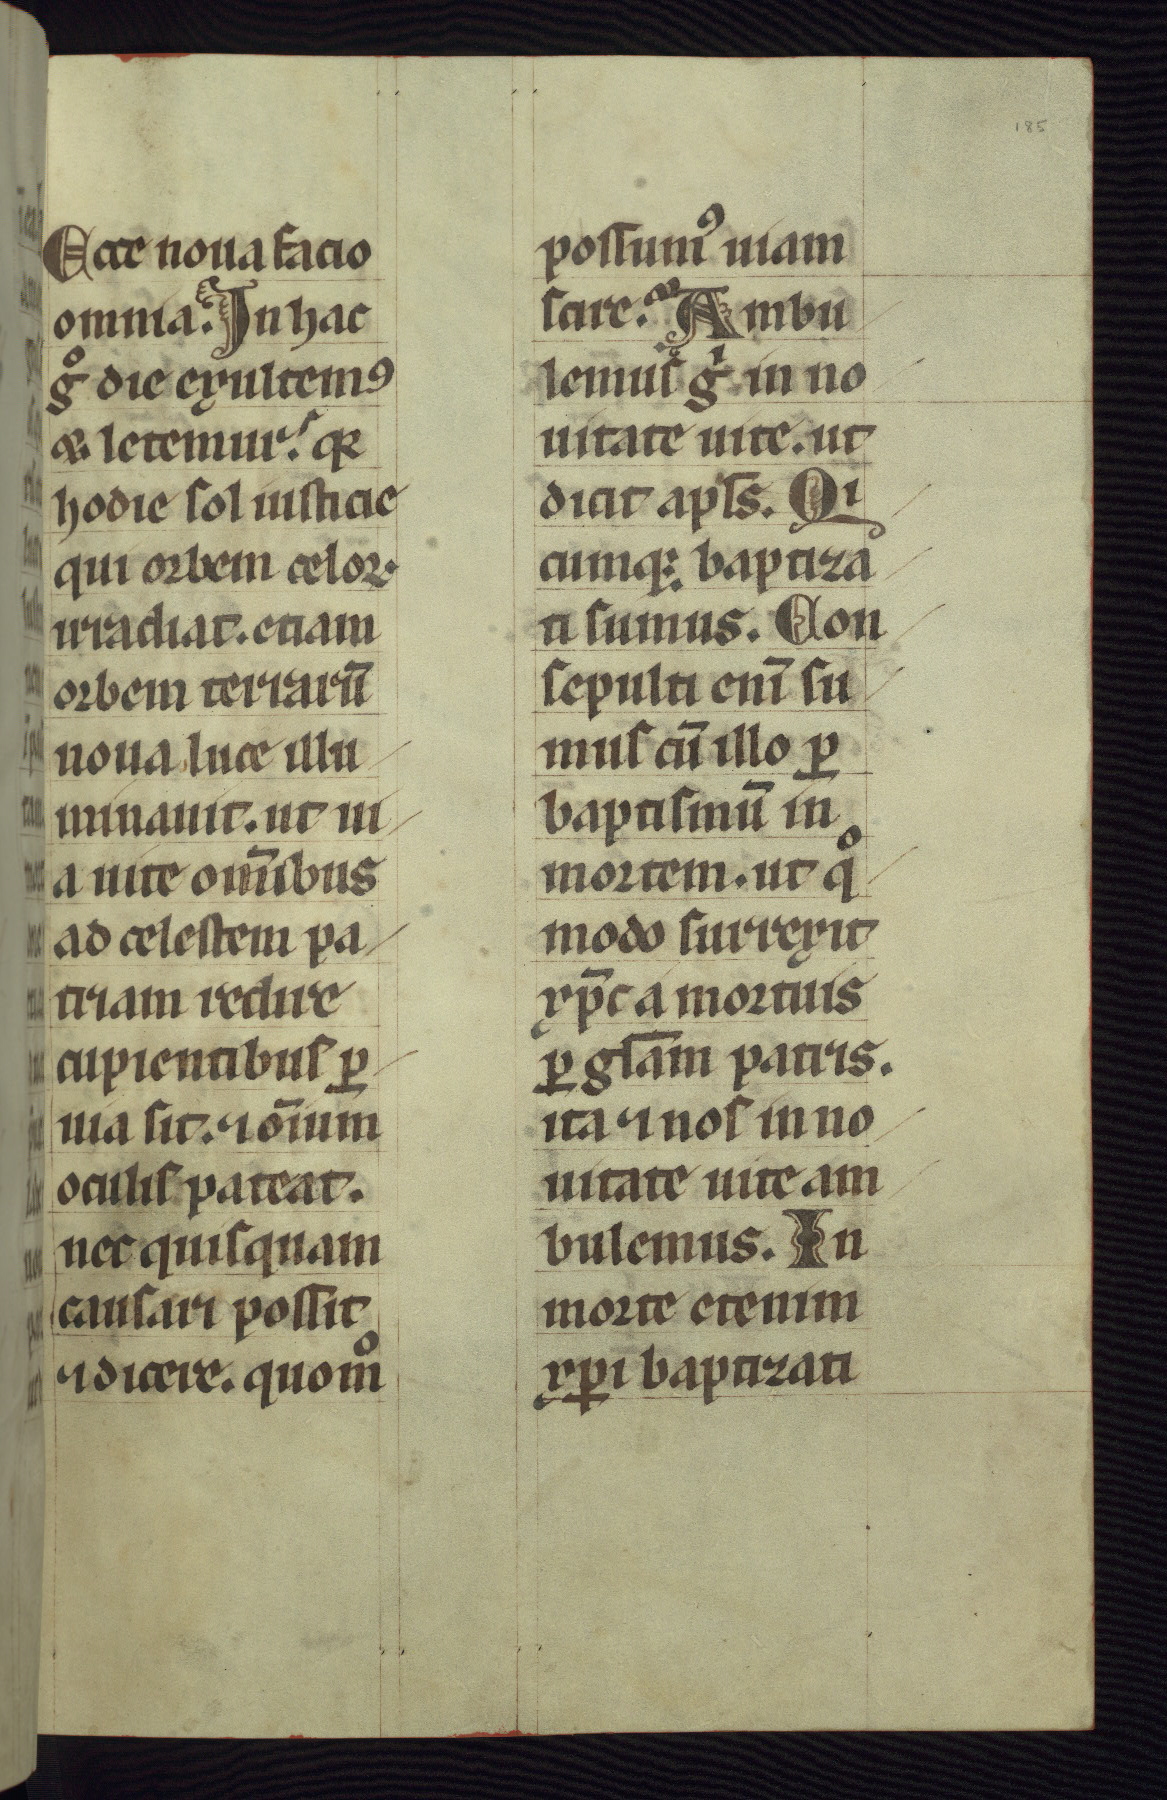 185
Ecce noua facio
omnia. In hac
gͦ die exultemꝰ
⁊ letemur. qꝛ
hodie sol iusticie
qui orbem celoꝝ
irradiat. etiam
orbem terrarū
noua luce illu
minauit. ut ui
a uite om̄ibus
ad celestem pa
triam redire
cupientibus ꝑ
uia sit. ⁊ oīum
oculis pateat.
nec quisquam
causari possit
⁊ dicere. quomͦ
possumꝰ uiam
scire. Ambu
lemus gͥ in no
uitate uite. ut
dicit apls. Qi
cumqꝫ baptiza
ti sumus. Con
sepulti eni̅ su
mus cū illo ꝑ
baptismū in
mortem. ut qͦ
modo surrexit
xp̄c a mortuis
ꝑ gl̄am patris.
ita ⁊ nos in no
uitate uite am
bulemus. In
morte etenim
xp̱i baptizati